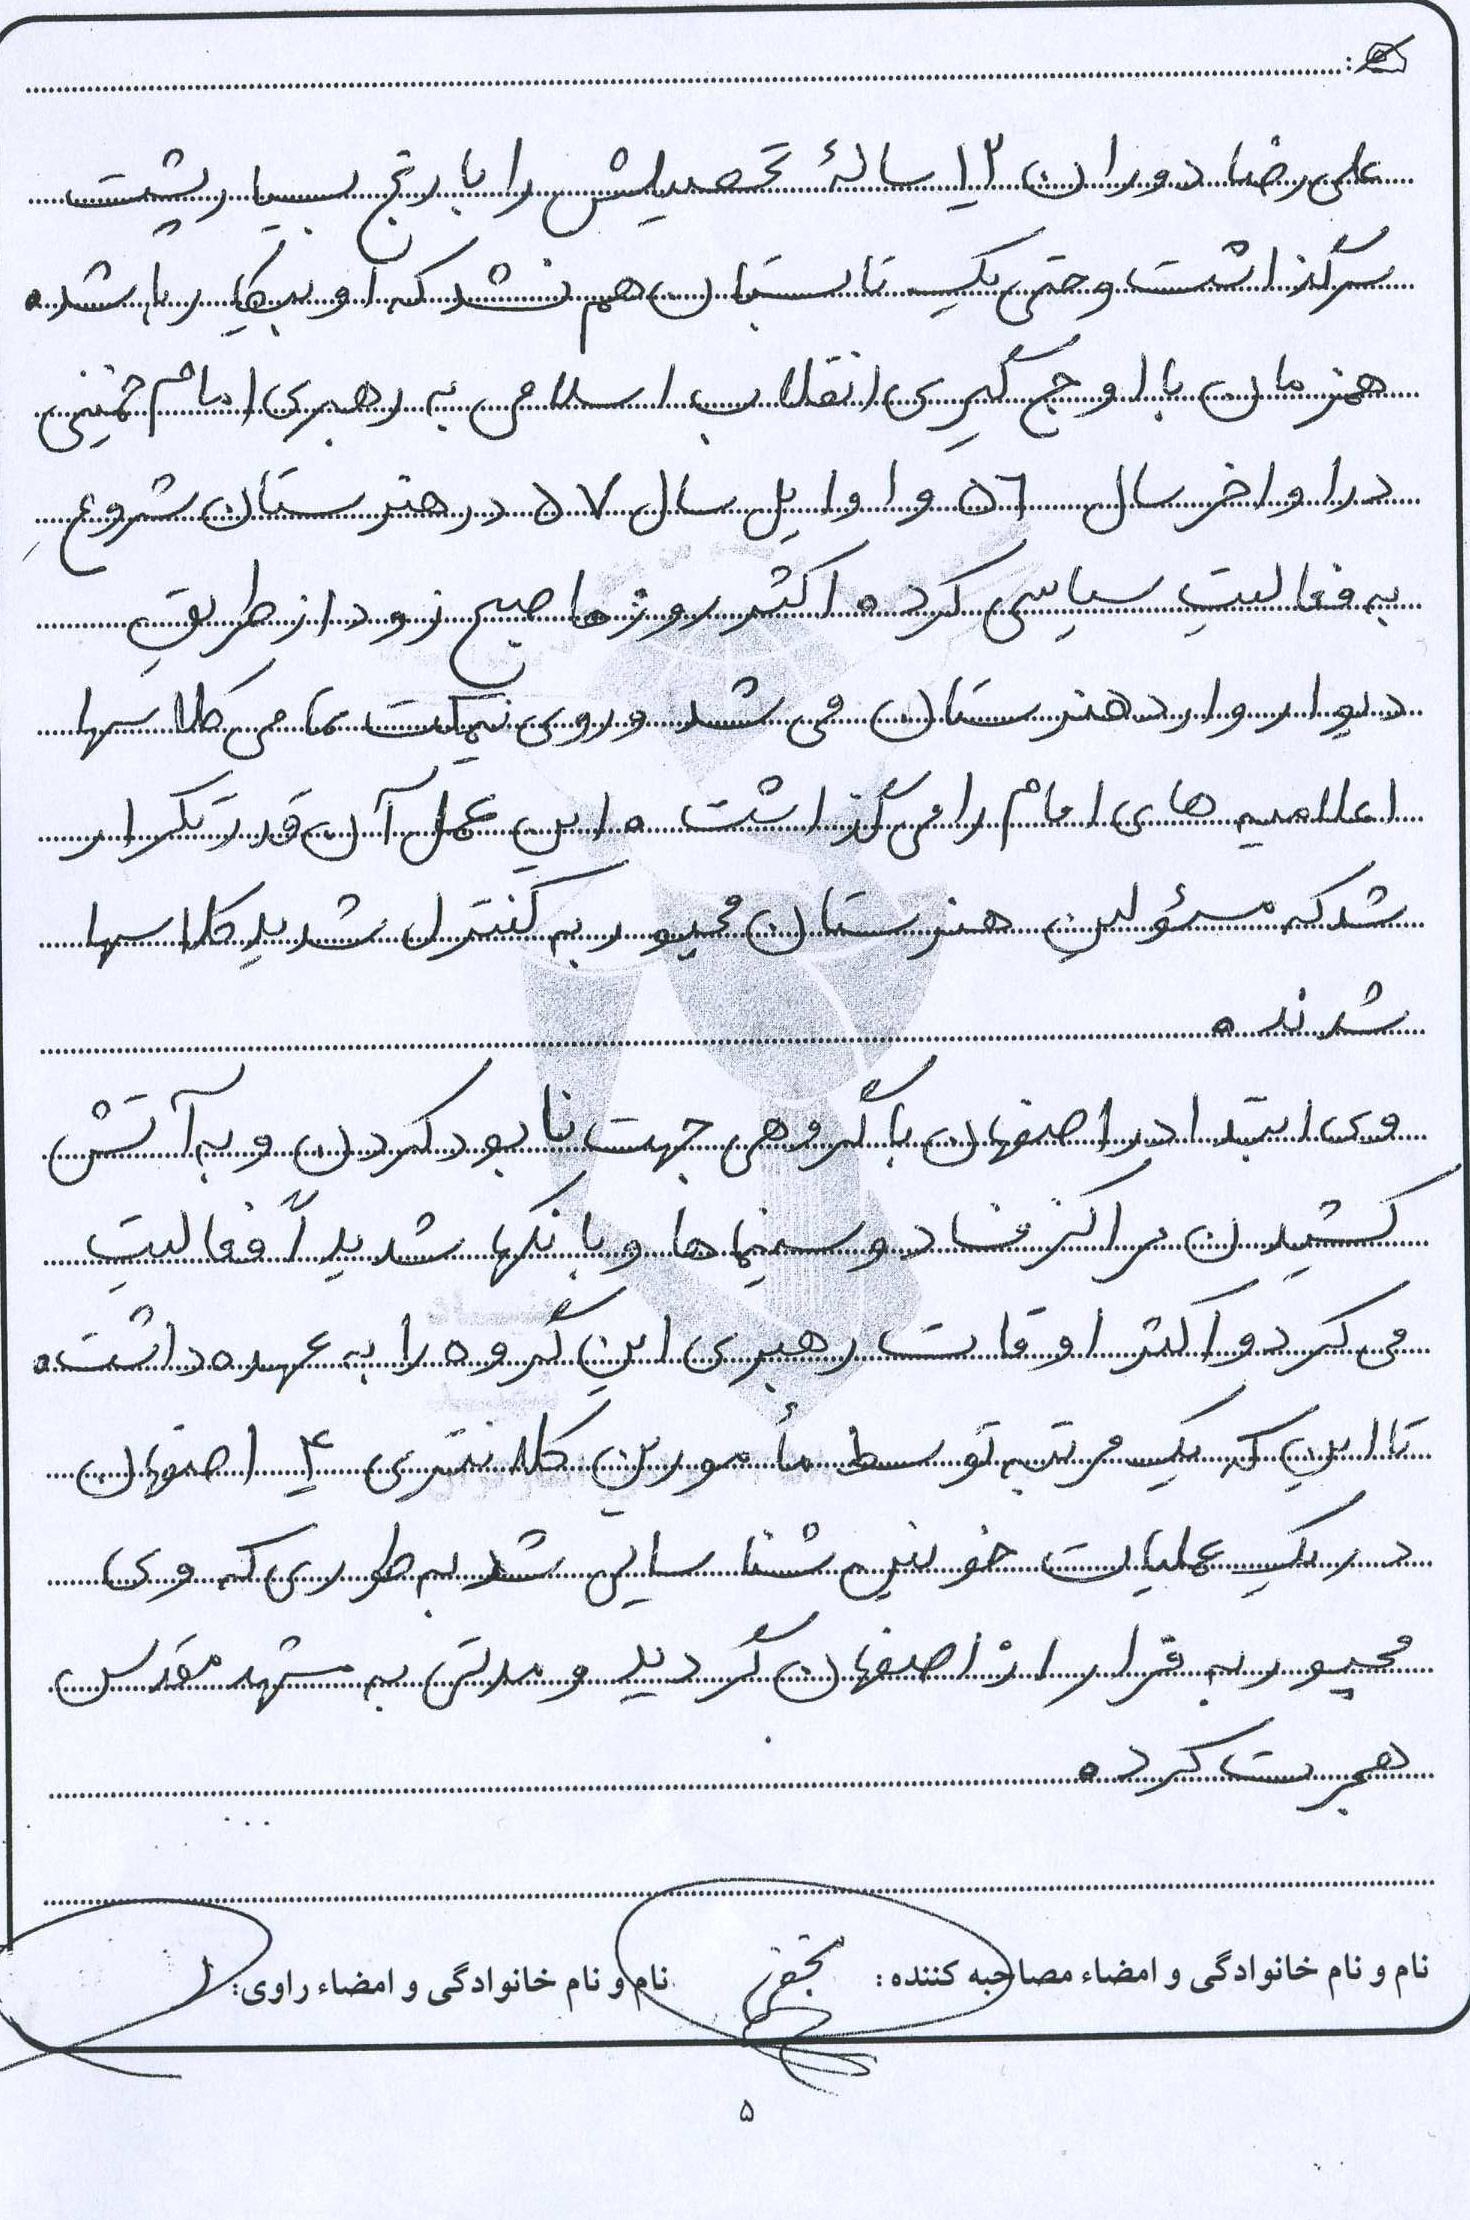 علی رضا دوران ۱۲ سالهٔ تحصیلیش را با رنج بسیار پشت
سر گذاشت و حتی یک تابستان هم نشد که او بیکار باشد.
همزمان با اوج گیری انقلاب اسلامی به رهبری امام خمینی
در اواخر سال ۵۶ و اوایل سال ۵۷ در هنرستان شروع
به فعالیتِ سیاسی کرد. اکثر روزها صبح زود از طریقِ
دیوار وارد هنرستان می شد و روی نیمکت تمامی کلاسها
اعلامیه های امام را می گذاشت. این عمل آن قدر تکرار
شد که مسئولین هنرستان مجبور به کنترل شدیدِ کلاسها
شدند.
وی ابتدا در اصفهان با گروهی جهت نابود کردن و به آتش
کشیدن مراکز فساد و سینماها و بانکها شدیداً فعالیتِ
می کرد و اکثر اوقات رهبری این گروه را به عهده داشت.
تا این که یک مرتبه توسط مأمورین کلانتری ۴ اصفهان
در یک عملیات خونین شناسایی شد به طوری که وی
مجبور به فرار از اصفهان گردید و مدتی به مشهد مقدس
هجرت کرد.
نام و نام خانوادگی و امضاء مصاحبه کننده: نام و نام خانوادگی و امضاء راوی:
۵